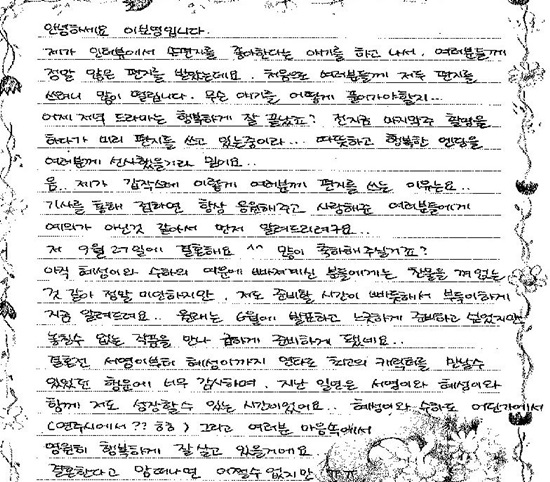 안녕하세요 이보영입니다.
제가 인터뷰에서 손편지를 좋아한다는 얘기를 하고 나서, 여러분들께
정말 많은 편지를 받았는데요. 처음으로 여러분들께 저두 편지를
쓰려니 많이 떨립니다. 무슨 얘기를 어떻게 풀어가야할지...
어제 저녁 드라마는 행복하게 잘 끝났죠? 전 지금 마지막주 촬영을
하다가 미리 편지를 쓰고 있는중이라... 따뜻하고 행복한 엔딩을
여러분께 선사했을거라 믿어요..
음.. 제가 갑작스레 이렇게 여러분께 편지를 쓰는 이유는요..
기사를 통해 접하면 항상 응원해주고 사랑해준 여러분들에게
예의가 아닌것 같아서 먼저 알려드리려구요..
저 9월 27일에 결혼해요 ^^ 많이 축하해주실거죠?
아직 혜성이와 수하의 여운에 빠져계신 분들에게는 찬물을 껴 얹는
것 같아 정말 미안하지만, 저도 준비할 시간이 빠듯해서 부득이하게
지금 알려드려요.. 원래는 6월에 발표하고 느긋하게 준비하고 싶었지만
놓칠수 없는 작품을 만나 급하게 준비하게 됐네요..
결혼전 서영이부터 혜성이까지 연타로 최고의 캐릭터를 만날수
있었던 행운에 너무 감사하며, 지난 일년은 서영이와 혜성이와
함께 저도 성장할수 있는 시간이었어요.. 혜성이와 수하도 어딘가에서
(연주시에서?? ㅎㅎ) 그리고 여러분 마음속에서
영원히 행복하게 잘 살고 있을거에요..
결혼한다고 맘 떠나면 어쩔수 없지만 ㅠㅠ